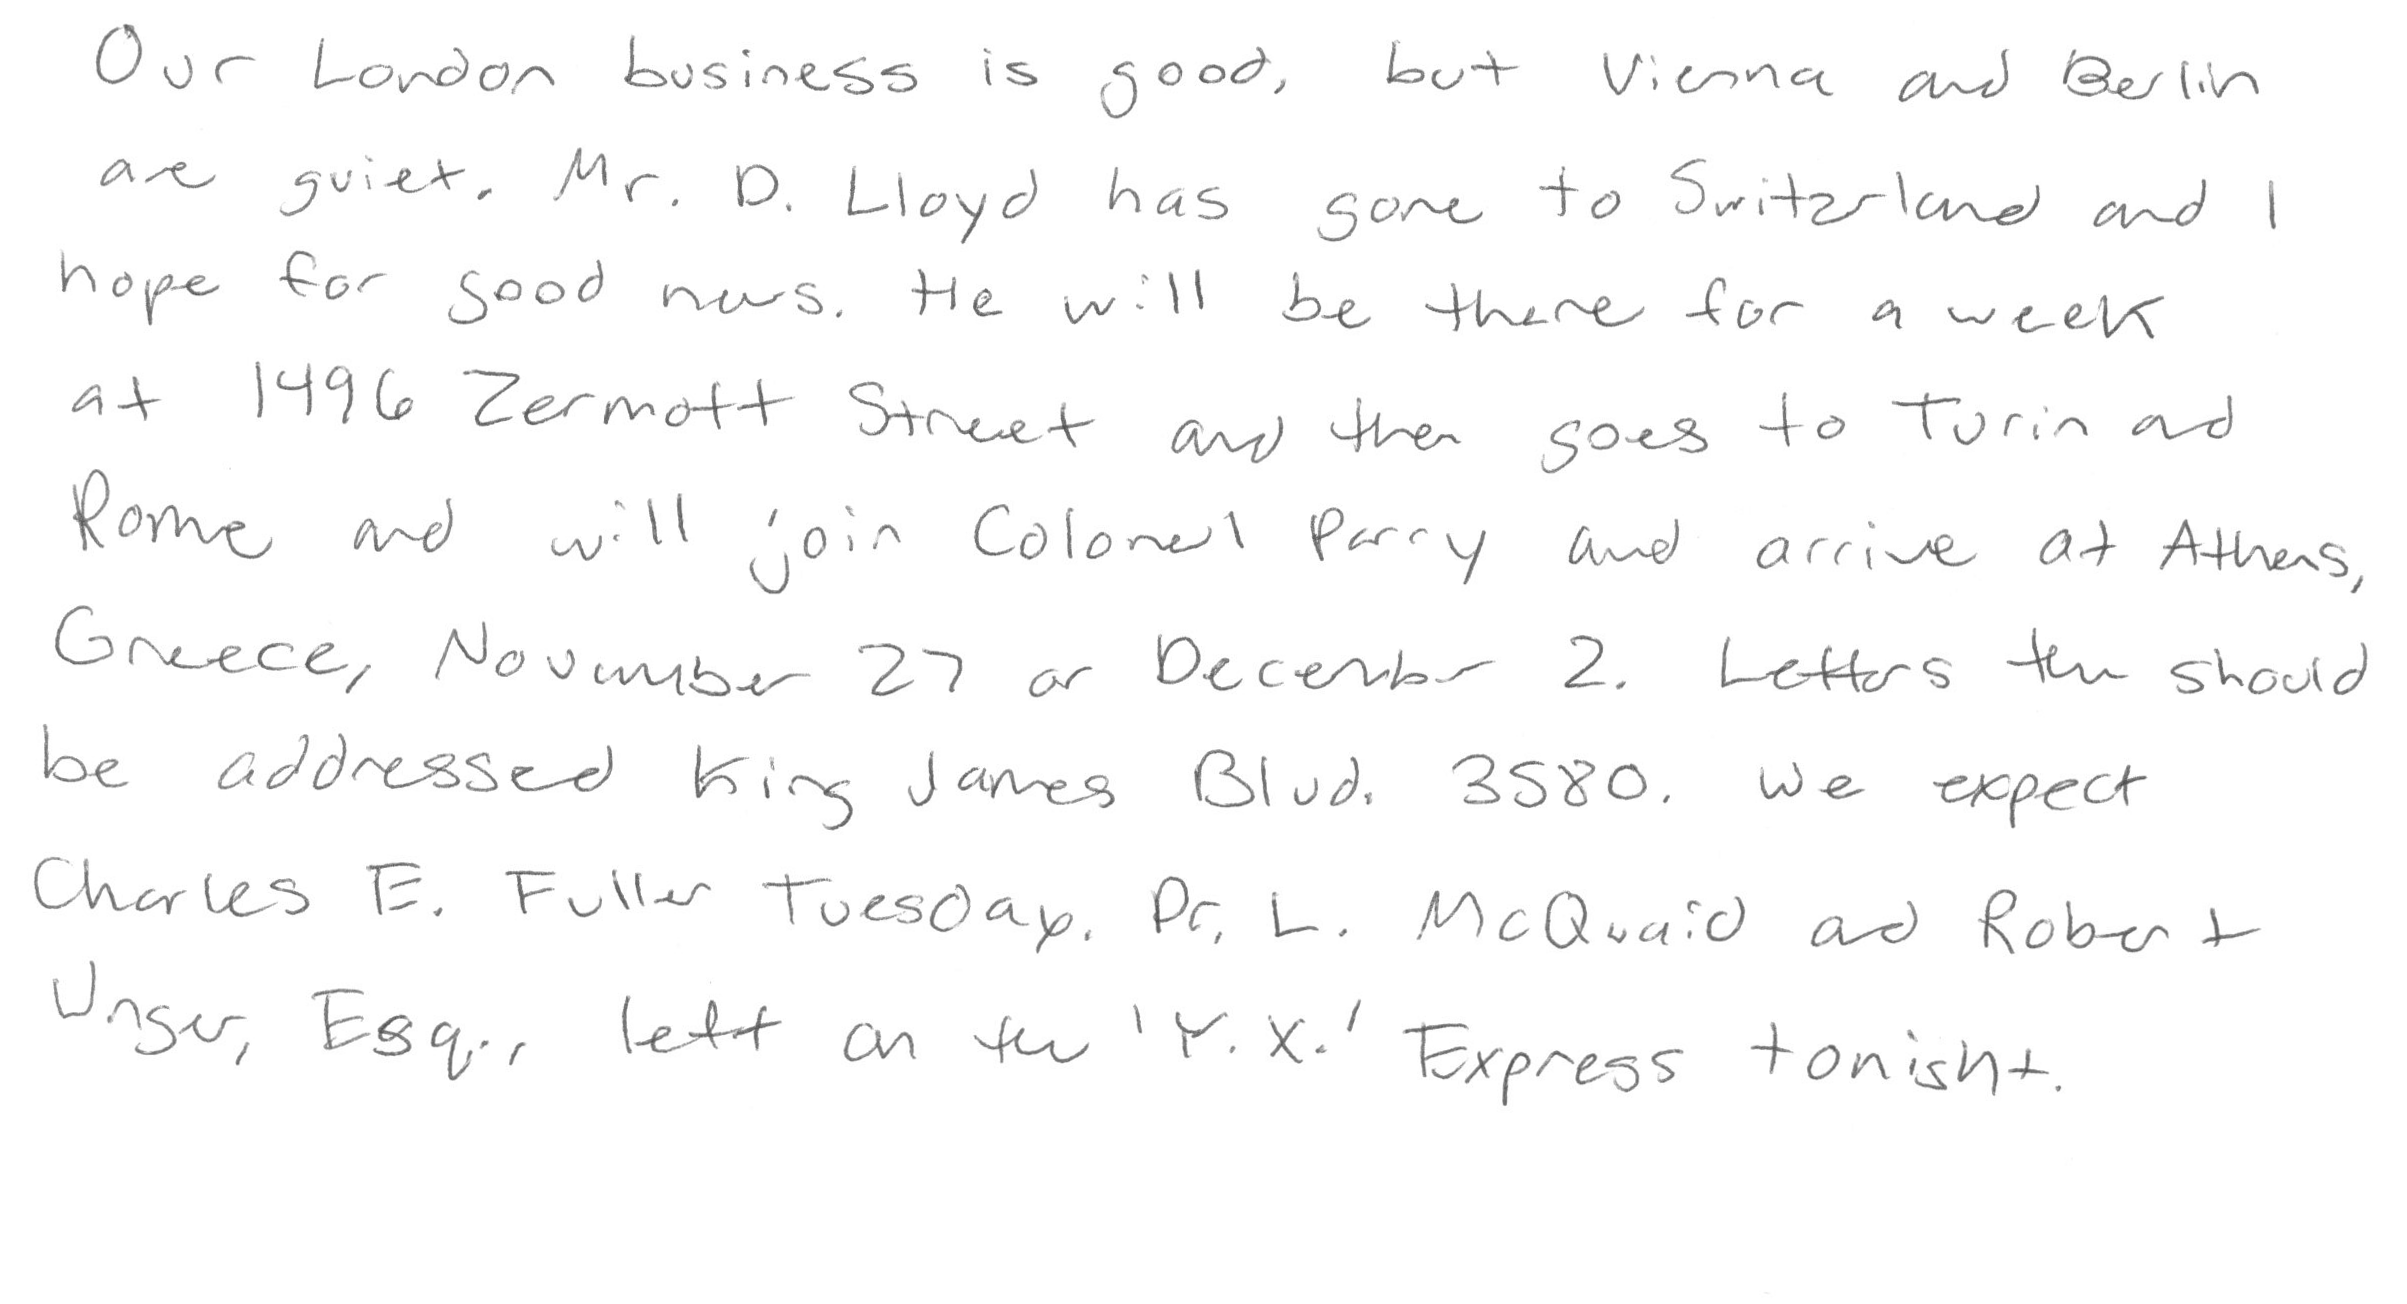 Our London business is good, but Vienna and Berlin
are quiet. Mr. D. Lloyd has gone to Switzerland and I
hope for good news. He will be there for a week
at 1496 Zermott Street and then goes to Turin and
Rome and will join Colonel Parry and arrive at Athens,
Greece, November 27 or December 2. Letters there should
be addressed King James Blvd. 3580. We expect
Charles E. Fuller Tuesday. Dr. L. McQuaid and Robert
Unger, Esq., left on the 'Y.X.' Express tonight.